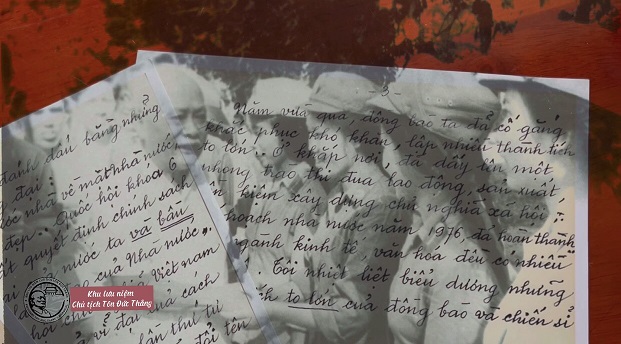 đánh dấu bằng những
đại :
nhà về mặt nhà nước
đẹp. Quốc hội khoá 6
quyết định chính sách
nước ta và bầu
của Nhà nước,
Việt nam
vĩ đại của cách
lần thứ tư
đổi tên
- 3 -
Năm vừa qua, đồng bào ta đã cố gắng
khắc phục khó khăn, lập nhiều thành tích
to lớn. Ở khắp nơi, đã dấy lên một
phong trào thi đua lao động, sản xuất
kiệm xây dựng chủ nghĩa xã hội.
hoạch nhà nước năm 1976, đã hoàn thành
ngành kinh tế, văn hoá đều có nhiều
Tôi nhiệt liệt biểu dương những
to lớn của đồng bào và chiến sĩ
Khu lưu niệm
Chủ tịch Tôn Đức Thắng